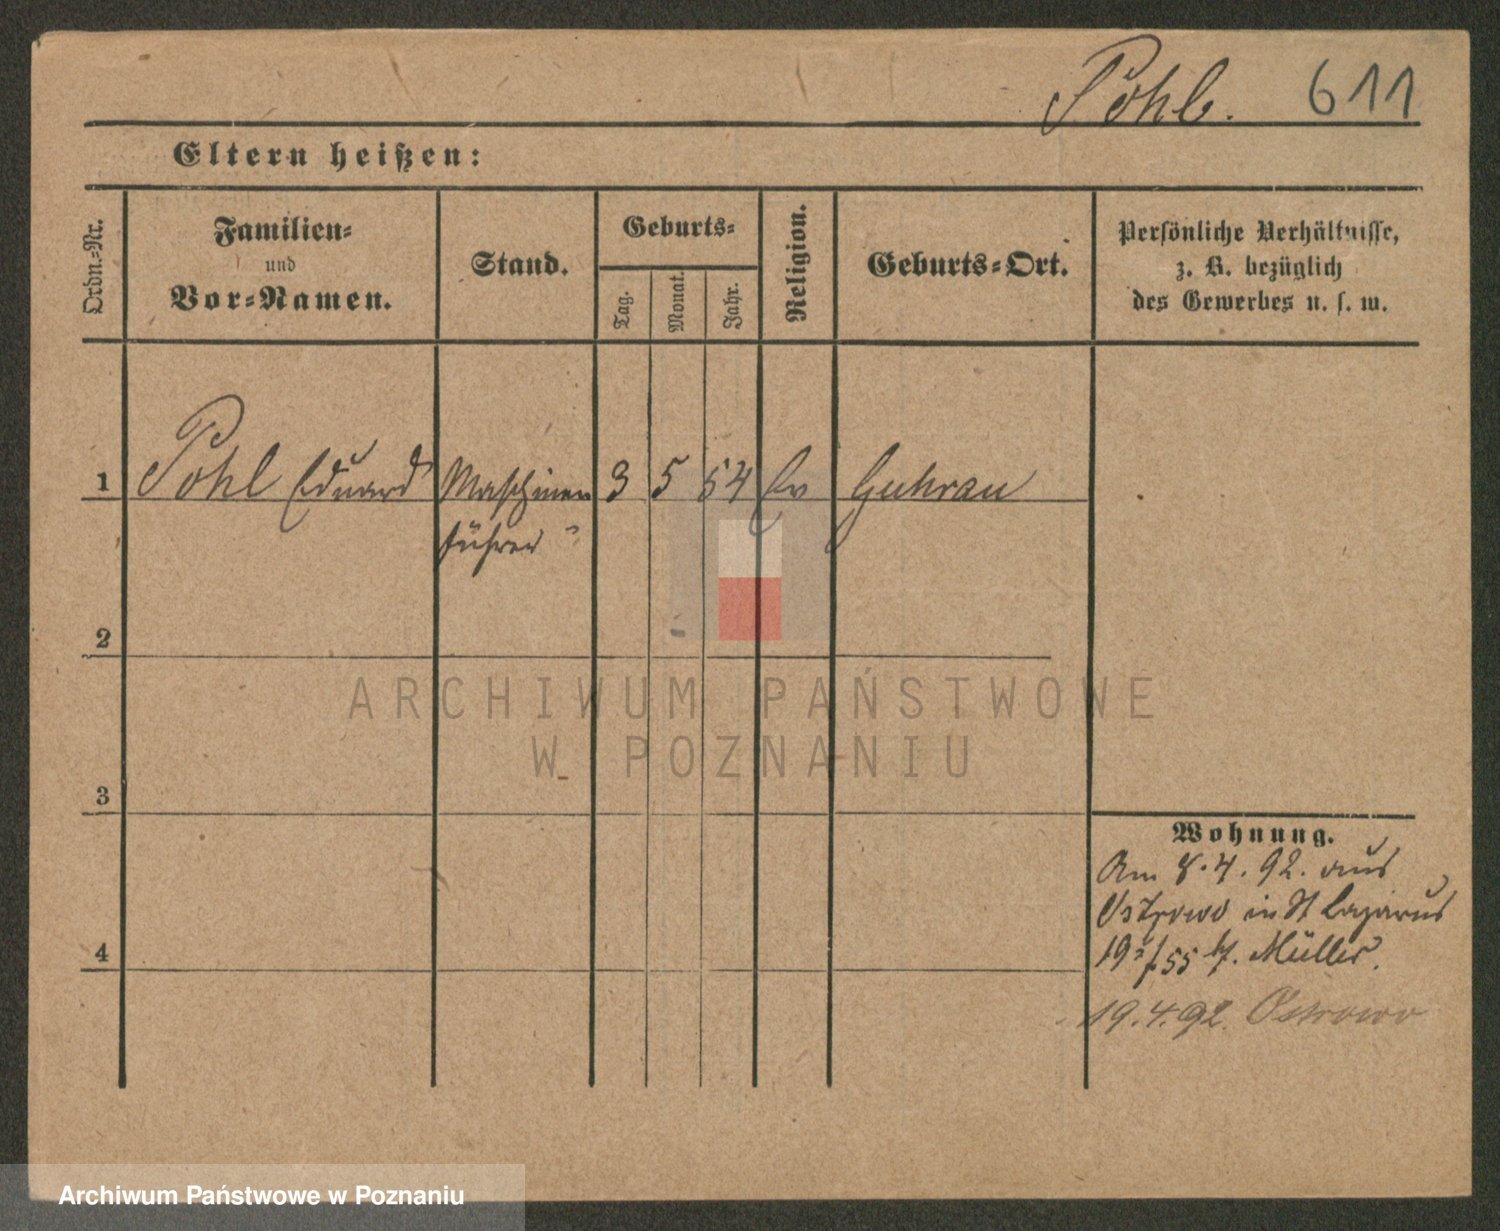 Pohl. 611
Eltern heißen:
Ordn.-Nr.
Familien-
und
Vor-Namen.
Stand.
Geburts-
Tag.
Monat.
Jahr.
Religion.
Geburts-Ort.
Persönliche Verhältnisse,
z. B. bezüglich
des Gewerbes u. s. w.
1 Pohl Eduard Maschinen 3 5 54 Ev Guhrau
führer
2
3
4
Wohnung.
Am 8.4.92. aus
Ostrowo in St Lazarus
55 b/. Müller.
19.4.92. Ostrowo
ARCHIWUM PAŃSTWOWE
W POZNANIU
Archiwum Państwowe w Poznaniu